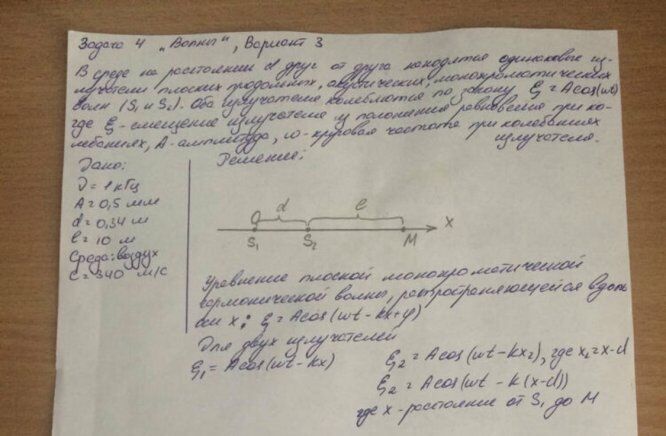 Задача 4 „Волны", Вариант 3
В среде на расстоянии d друг от друга находятся одинаковые из-
лучатели плоских продольных, акустических, монохроматических
волн (S₁ и S₂). Оба излучателя колеблются по закону ξ = Acos(ωt)
где ξ - смещение излучателя из положения равновесия при ко-
лебаниях, A - амплитуда, ω - круговая частота при колебаниях
излучателя.
Дано:
ν = 1 кГц
A = 0,5 мм
d = 0,34 м
l = 10 м
Среда: воздух
C = 340 м/с
Решение:
O d l
S₁ S₂ M X
Уравнение плоской монохроматической
гармонической волны, распространяющейся вдоль
оси x: ξ = Acos(ωt - kx + φ)
Для двух излучателей
ξ₁ = Acos(ωt - kx)
ξ₂ = Acos(ωt - kx₂), где x₂ = x - d
ξ₂ = Acos(ωt - k(x-d))
где x - расстояние от S₁ до M